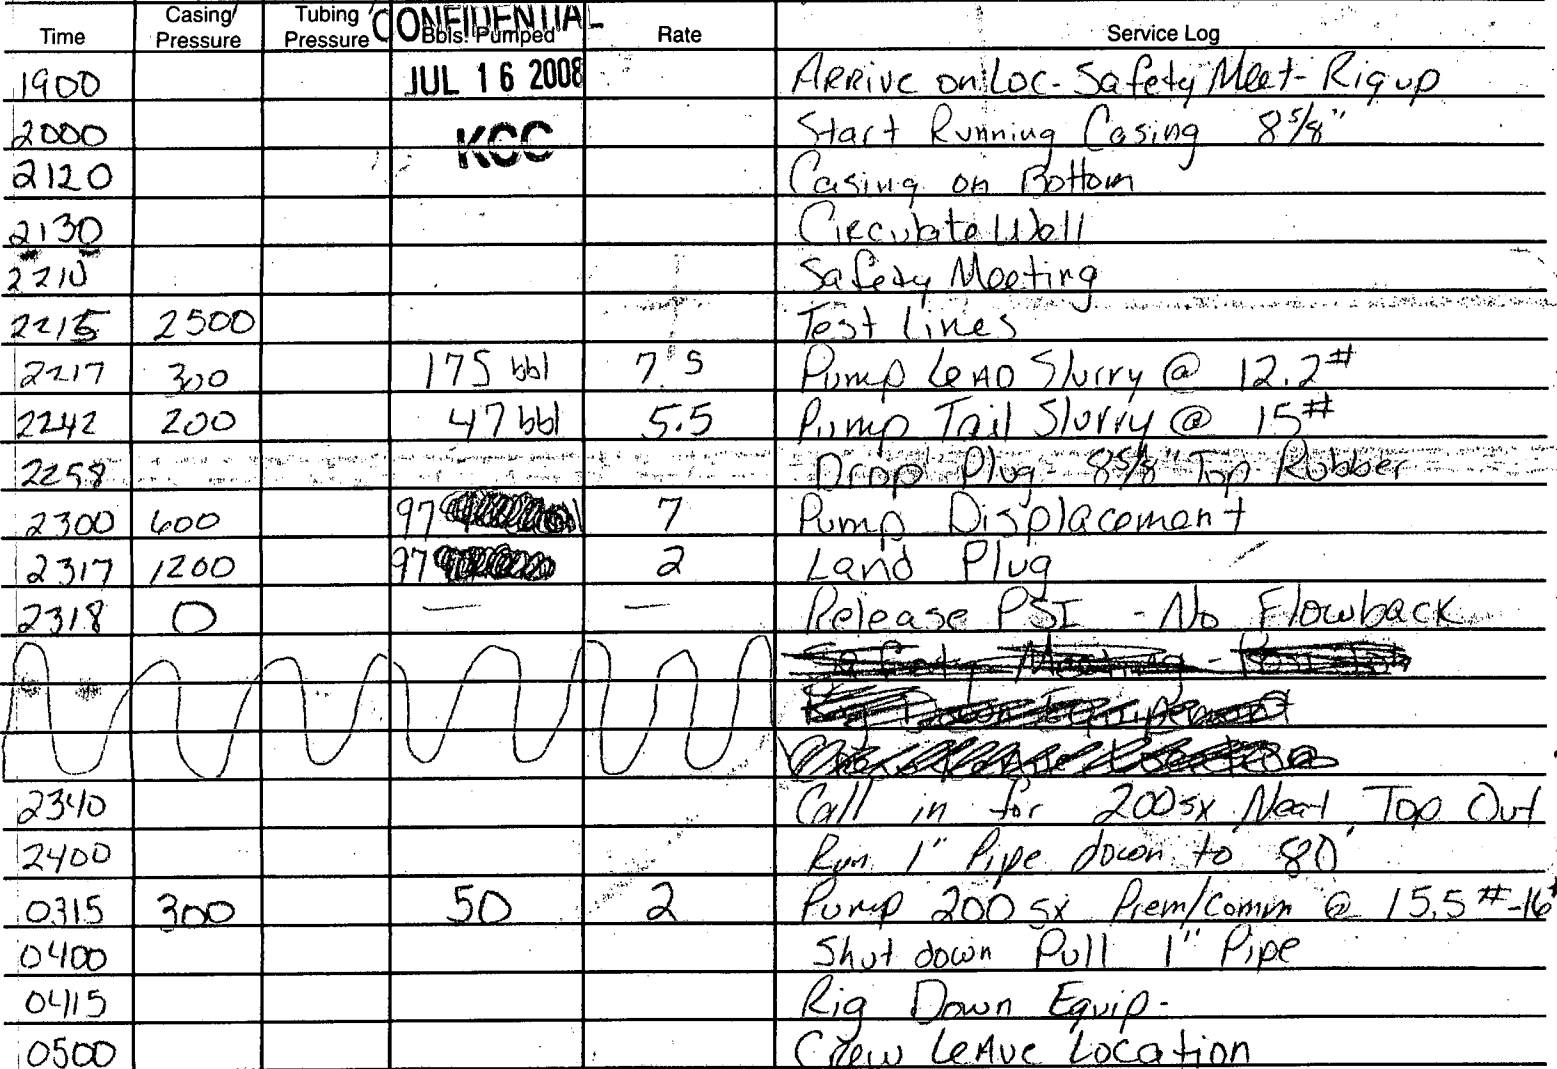 CONFIDENTIAL
Time Casing/ Pressure Tubing Pressure Bbls. Pumped Rate Service Log
1900 JUL 16 2008 Arrive on Loc - Safety Meet - Rig up
2000 KCC Start Running Casing 8 5/8"
2120 Casing on Bottom
2130 Circulate Well
2210 Safety Meeting
2215 2500 Test Lines
2217 300 175 bbl 7.5 Pump Lead Slurry @ 12.2#
2242 200 47 bbl 5.5 Pump Tail Slurry @ 15#
2258 Drop Plug - 8 5/8" Top Rubber
2300 600 97 7 Pump Displacement
2317 1200 97 2 Land Plug
2318 0 — — Release PSI - No Flowback
Safety Meeting -
Rig Down Equipement
2340 Call in for 200 sx Neat Top Out
2400 Run 1" Pipe down to 80'
0315 300 50 2 Pump 200 sx Prem/Comm @ 15.5#-16#
0400 Shut down Pull 1" Pipe
0415 Rig Down Equip -
0500 Crew Leave Location